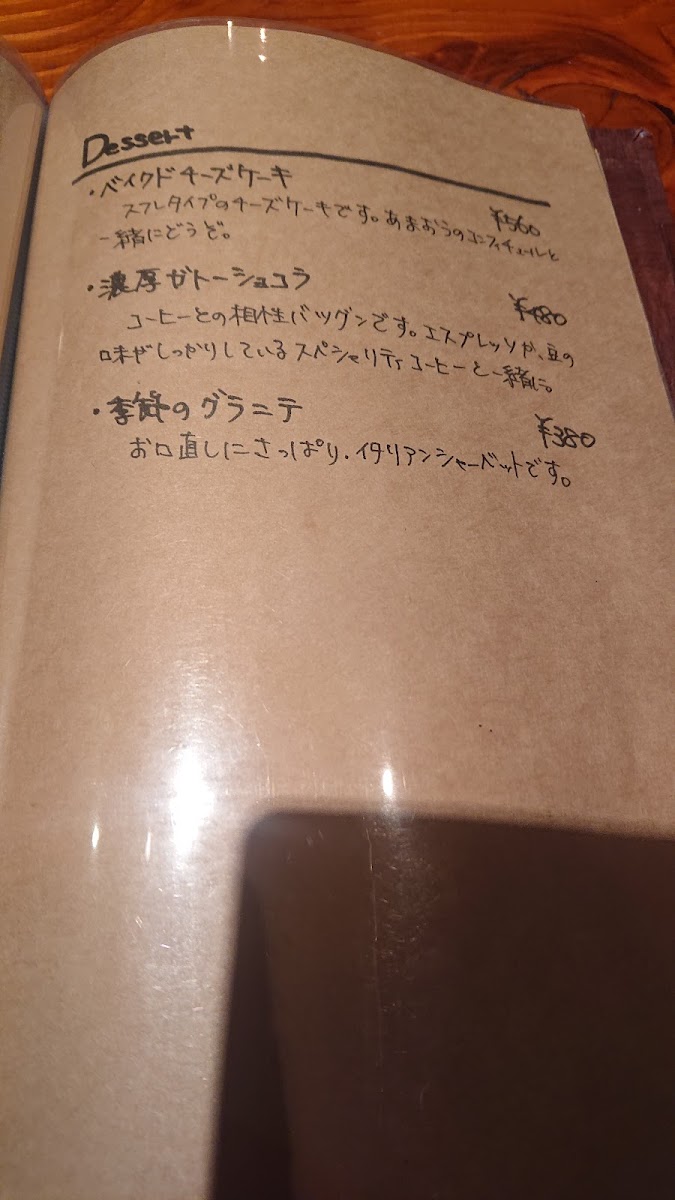 Dessert
・ベイクドチーズケーキ ¥560
スフレタイプのチーズケーキです。あまおうのコンフィチュールと
一緒にどうぞ。
・濃厚ガトーショコラ ¥480
コーヒーとの相性バツグンです。エスプレッソや、豆の
味がしっかりしているスペシャリティコーヒーと一緒に。
・季節のグラニテ ¥380
お口直しにさっぱり、イタリアンシャーベットです。